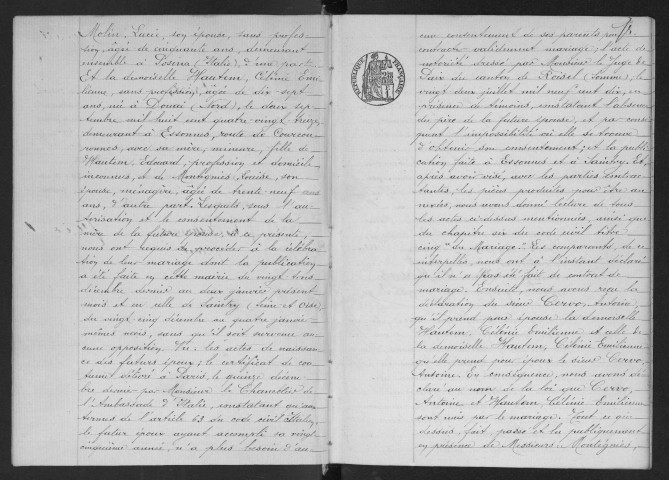 Molin, Lucie, son épouse, sans profes-
sion, âgée de cinquante ans, demeurant
ensemble à Posina (Italie) d'une part
Et la demoiselle Hautem, Célénie Emi-
lienne, sans profession, âgée de dix sept
ans, née à Douai (Nord), le deux sep-
tembre mil huit cent quatre vingt treize,
demeurant à Essonnes, route de Courcou-
ronnes, avec sa mère, mineure, fille de
Hautem, Edouard, profession et domicile
inconnus, et de Montignies, Louise, son
épouse, ménagère, âgée de trente neuf
ans, d'autre part. Lesquels, sous l'au-
torisation et le consentement de la
mère de la future épouse, à ce présente,
nous ont requis de procéder à la célébra-
tion de leur mariage dont la publication
a été faite en cette mairie du vingt trois
décembre dernier au deux janvier présent
mois et en celle de Saintry (Seine et Oise)
du vingt cinq décembre au quatre janvier
mêmes mois, sans qu'il soit survenu au-
cune opposition. Vu: les actes de naissan-
ce des futurs époux; le certificat de cou-
tume délivré à Paris, le quinze décem-
bre dernier par Monsieur le Chancelier de
l'Ambassade d'Italie, constatant qu'aux
termes de l'article 63 du code civil Italien,
le futur époux ayant accompli sa vingt
cinquième année, n'a plus besoin d'au-
cun consentement de ses parents pour
contracter validement mariage; l'acte de
notoriété dressé par Monsieur le Juge de
Paix du canton de Roisel (Somme), le
vingt deux juillet mil neuf cent dix, en
présence de témoins, constatant l'absence
du père de la future épouse, et par consé-
quent l'impossibilité où elle se trouve
d'obtenir son consentement; et la publi-
cation faite à Essonnes et à Saintry. Et,
après avoir visé, avec les parties contrac-
tantes, les pièces produites pour être an-
nexées, nous avons donné lecture de tous
les actes ci-dessus mentionnés, ainsi que
du chapitre six du code civil titre
cinq "du Mariage". Les comparants, de ce
interpellés, nous ont à l'instant déclaré
qu'il n'a pas été fait de contrat de
mariage. Ensuite, nous avons reçu la
déclaration du sieur Cervo, Antoine,
qu'il prend pour épouse la demoiselle
Hautem, Célénie Emilienne et celle de
la demoiselle Hautem, Célénie Emilienne
qu'elle prend pour époux le sieur Cervo,
Antoine. En conséquence, nous avons dé-
claré au nom de la loi que Cervo,
Antoine et Hautem Célénie Emilienne
sont unis par le mariage. Tout ce que
dessus, fait, passé et lu publiquement
en présence de Messieurs: Montignies,
RÉPUBLIQUE FRANÇAISE